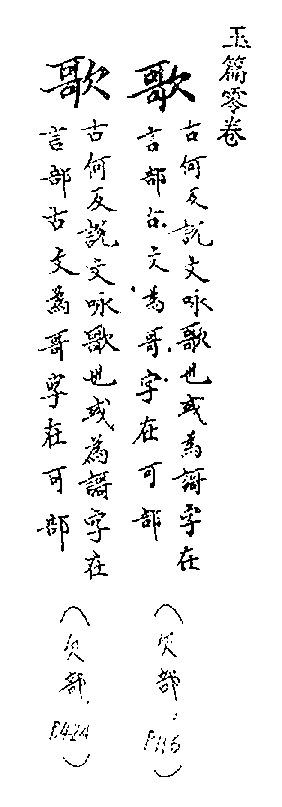 玉篇零卷
歌
古何反説文咏歌也或為謌字在
言部古文為哥字在可部
(欠部,P.116)
歌
古何反説文咏歌也或為謌字在
言部古文為哥字在可部
(欠部,P.424)